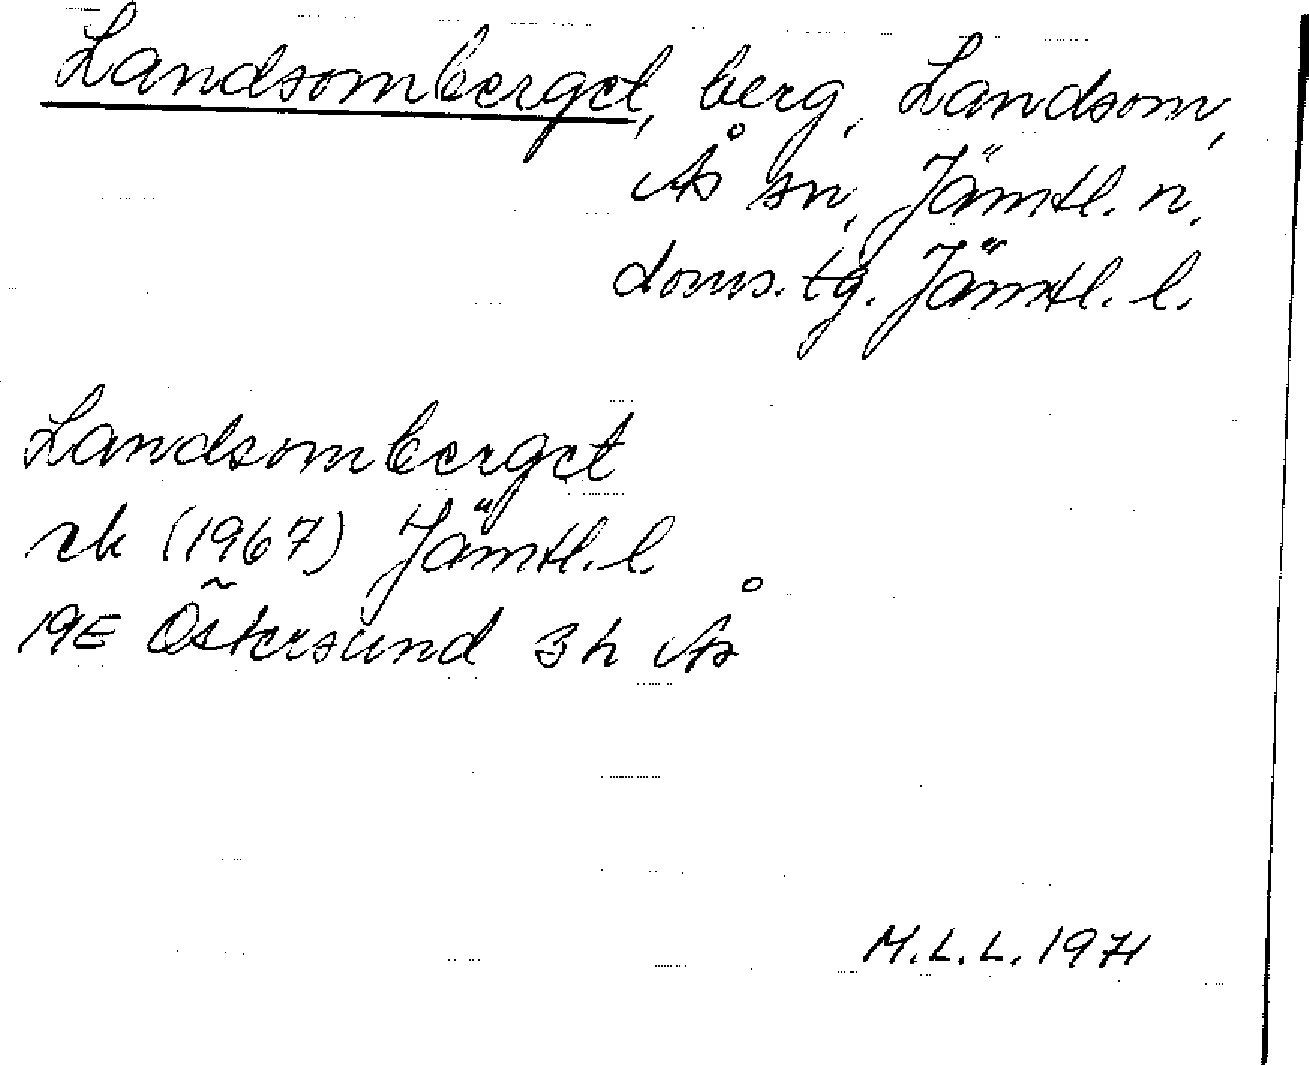 Landsomberget, berg, Landsom,
Ås sn, Jämtl. n.
doms. tg. Jämtl. l.
Landsomberget
rk (1967) Jämtl. l.
19E Östersund 3h Ås
M.L.L. 1971